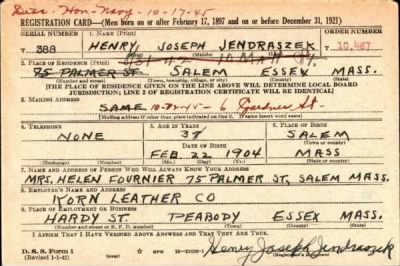 Disc. Hon. Navy - 10-17-45
REGISTRATION CARD—(Men born on or after February 17, 1897 and on or before December 31, 1921)
SERIAL NUMBER 1. NAME (Print) ORDER NUMBER
T 388 HENRY JOSEPH JENDRASZEK T 10,487
(First) (Middle) (Last)
2. PLACE OF RESIDENCE (Print)
75 PALMER ST. SALEM ESSEX MASS.
(Number and street) (Town, township, village, or city) (County) (State)
[THE PLACE OF RESIDENCE GIVEN ON THE LINE ABOVE WILL DETERMINE LOCAL BOARD
JURISDICTION; LINE 2 OF REGISTRATION CERTIFICATE WILL BE IDENTICAL]
3. MAILING ADDRESS
SAME 10-22-45 - 6 Gardner St.
[Mailing address if other than place indicated on line 2. If same insert word same]
4. TELEPHONE 5. AGE IN YEARS 6. PLACE OF BIRTH
NONE 37 SALEM
DATE OF BIRTH (Town or county)
FEB. 22 1904 MASS
(Exchange) (Number) (Mo.) (Day) (Yr.) (State or country)
7. NAME AND ADDRESS OF PERSON WHO WILL ALWAYS KNOW YOUR ADDRESS
MRS. HELEN FOURNIER 75 PALMER ST, SALEM MASS.
8. EMPLOYER'S NAME AND ADDRESS
KORN LEATHER CO
9. PLACE OF EMPLOYMENT OR BUSINESS
HARDY ST. PEABODY ESSEX MASS.
(Number and street or R. F. D. number) (Town) (County) (State)
I AFFIRM THAT I HAVE VERIFIED ABOVE ANSWERS AND THAT THEY ARE TRUE.
D. S. S. Form 1
(Revised 1-5-42) (over) Henry Joseph Jendraszek